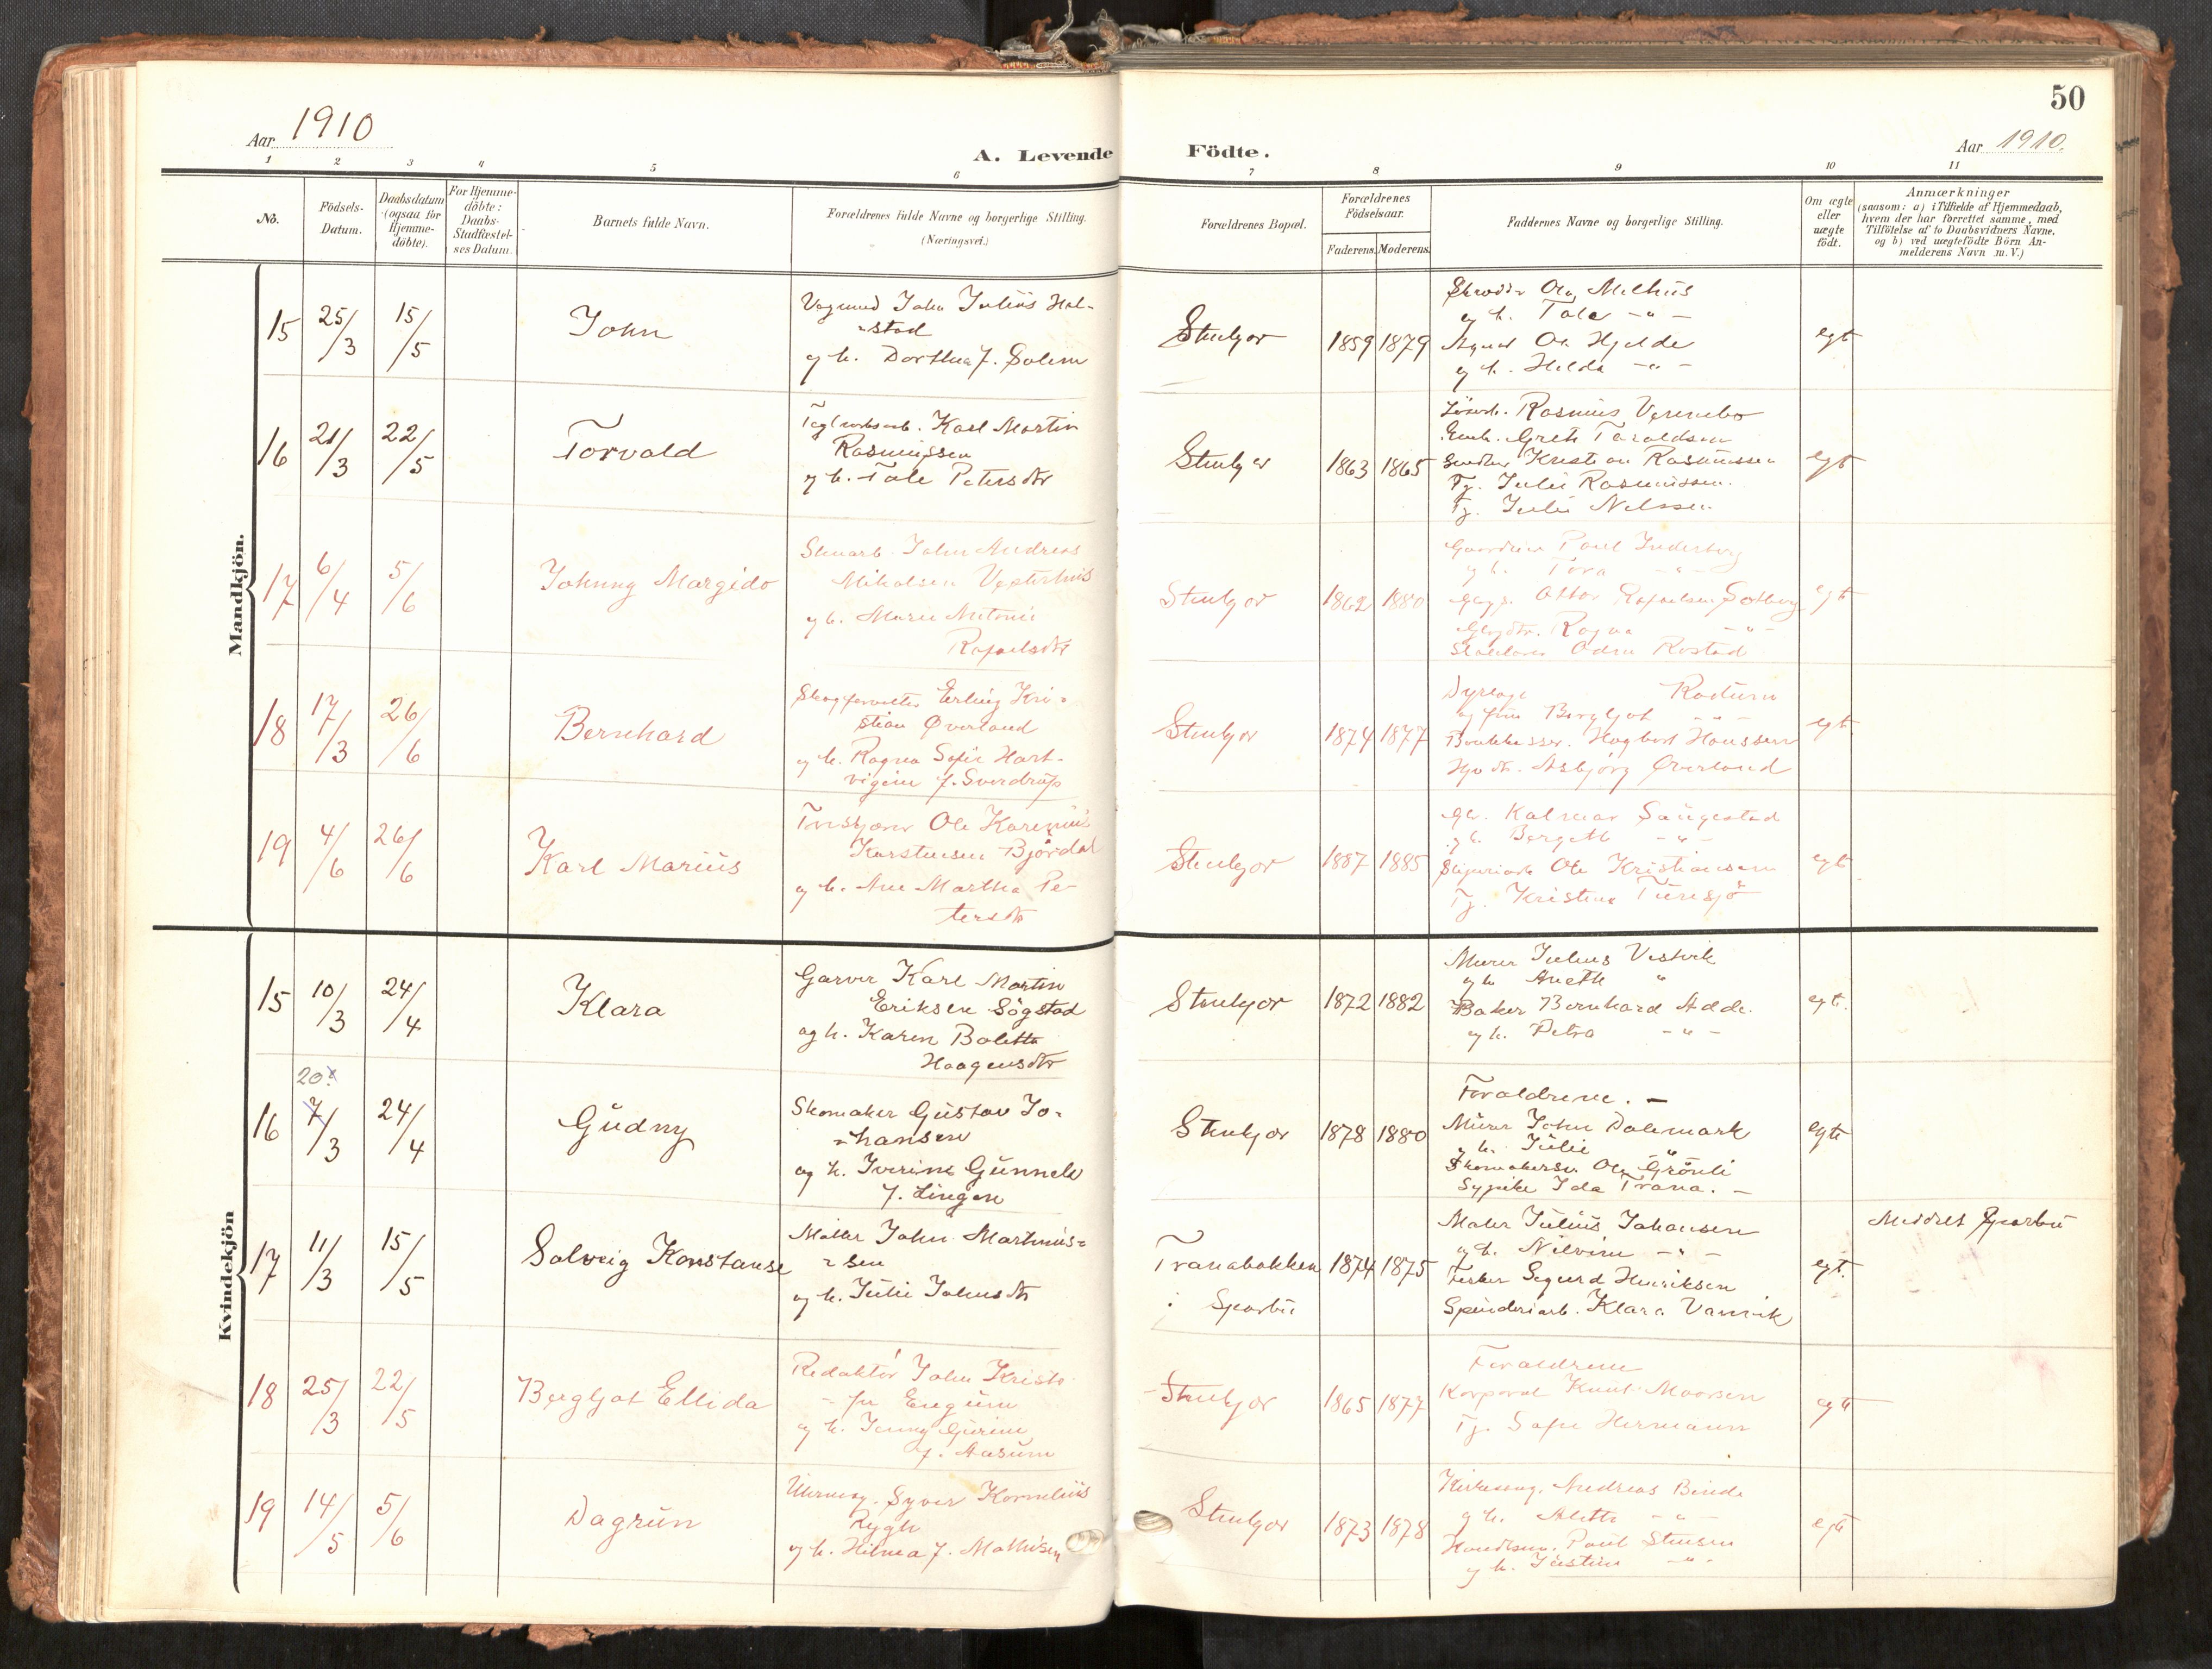 50
Aar 1910
A. Levende Födte.
Aar 1910.
1 2 3 4 5 6 7 8 9 10 11
No.
Födsels-
Datum.
Daabsdatum
(ogsaa for
Hjemme-
döbte).
For Hjemme-
döbte:
Daabs-
Stadfæstel-
ses Datum.
Barnets fulde Navn.
Forældrenes fulde Navne og borgerlige Stilling.
(Næringsvei.)
Forældrenes Bopæl.
Forældrenes
Födselsaar.
Faderens. Moderens.
Faddernes Navne og borgerlige Stilling.
Om ægte
eller
uægte
födt.
Anmærkninger
(saasom: a) i Tilfælde af Hjemmedaab,
hvem der har forrettet samme, med
Tilföielse af to Daabsvidners Navne,
og b) ved uægtefödte Börn An-
melderens Navn m. V.)
Mandkjön.
15 25/3 15/5 John
Vogmand John Julius Hal-
-stad
og h. Dorthea f. Solem
Stenkjær 1859 1879
Ole Melhus
og h. Tale -"-
Ole Hjelde
og h. Helda -"-
egt
16 21/3 22/5 Torvald
Karl Martin
Rasmussen
og h. Tale Petersdtr
Stenkjær 1863 1865
Rasmus Vennebo
Enk. Grete Taraldsen
Kristian Rasmussen
Tj. Julie Rasmussen.
Tj. Julie Nelssen
egt
17 6/4 5/6 Johnny Margido
Stenarb. John Andreas
Mikalsen Vesterhus
og h. Marie Antonie
Rafaelsdtr
Stenkjær 1862 1880
Paul Inderberg
og h. Tora -"-
Ottar Rafaelsen Solberg
Ragna -"-
Odin Rostad
egt
18 17/3 26/6 Bernhard
Skogforvalter Erling Kri-
stian Øverland
og h. Ragna Sofie Hart-
vigine f. Sverdrup
Stenkjær 1874 1877
Dyrlæge
og fru Bergljot -"-
Hagbart Hanssen
Asbjørg Øverland
egt.
19 4/6 26/6 Karl Marius
Ole Karenius
Karstensen Bjørdal
og h. Ane Martha Pe-
tersdtr
Stenkjær 1887 1885
Kalmar Saugestad
og h. Bergitte -"-
Ole Kristiansen
Tj. Kristine
egt
Kvindekjön
15 10/3 24/4 Klara
Garver Karl Martin
Eriksen Sögstad
og h. Karen Boletta
Haagensdtr
Stenkjær 1872 1882
Murer Julius Vestvik
og h. Anette "
Baker Bernhard Adde.
og h. Petra -"-
egt.
20?
16 7/3 24/4 Gudny
Skomaker Gustav Jo-
-hansen
og h. Iverine Gunnele
f. Lingen
Stenkjær 1878 1880
Forældrene. -
Murer John Dalemark
og h. Julie "
Skomakersv. Ole Grönli
Sypike Ida Trana. -
egte
17 11/3 15/5 Solveig Konstanse
Møller John Martinus-
-sen
og h. Julie Johnsdtr
Tranabakken
i Sparbu
1874 1875
Maler Julius Johansen
og h. Nilvine -"-
Fisker Sigurd Henriksen
Spinderiarb. Klara Vannvik
egt.
Meddelt Sparbu
18 25/3 22/5 Bergljot Ellida
Redaktör John Kristo-
-fer Engum
og h. Jenny Gurine
f. Aasum
Stenkjær 1865 1877
Forældrene
Korporal Knut Moorsen
Tj. Sofie Hermann
egt
19 14/5 5/6 Dagrun
Urmag. Syver Kornelius
Rygh
og h. Hilma f. Mathisen
Stenkjær 1873 1878
Kirkesang. Andreas Binde
og h. Aletta -"-
Handlsm. Paul Stensen
og h. Justine -"-
egt